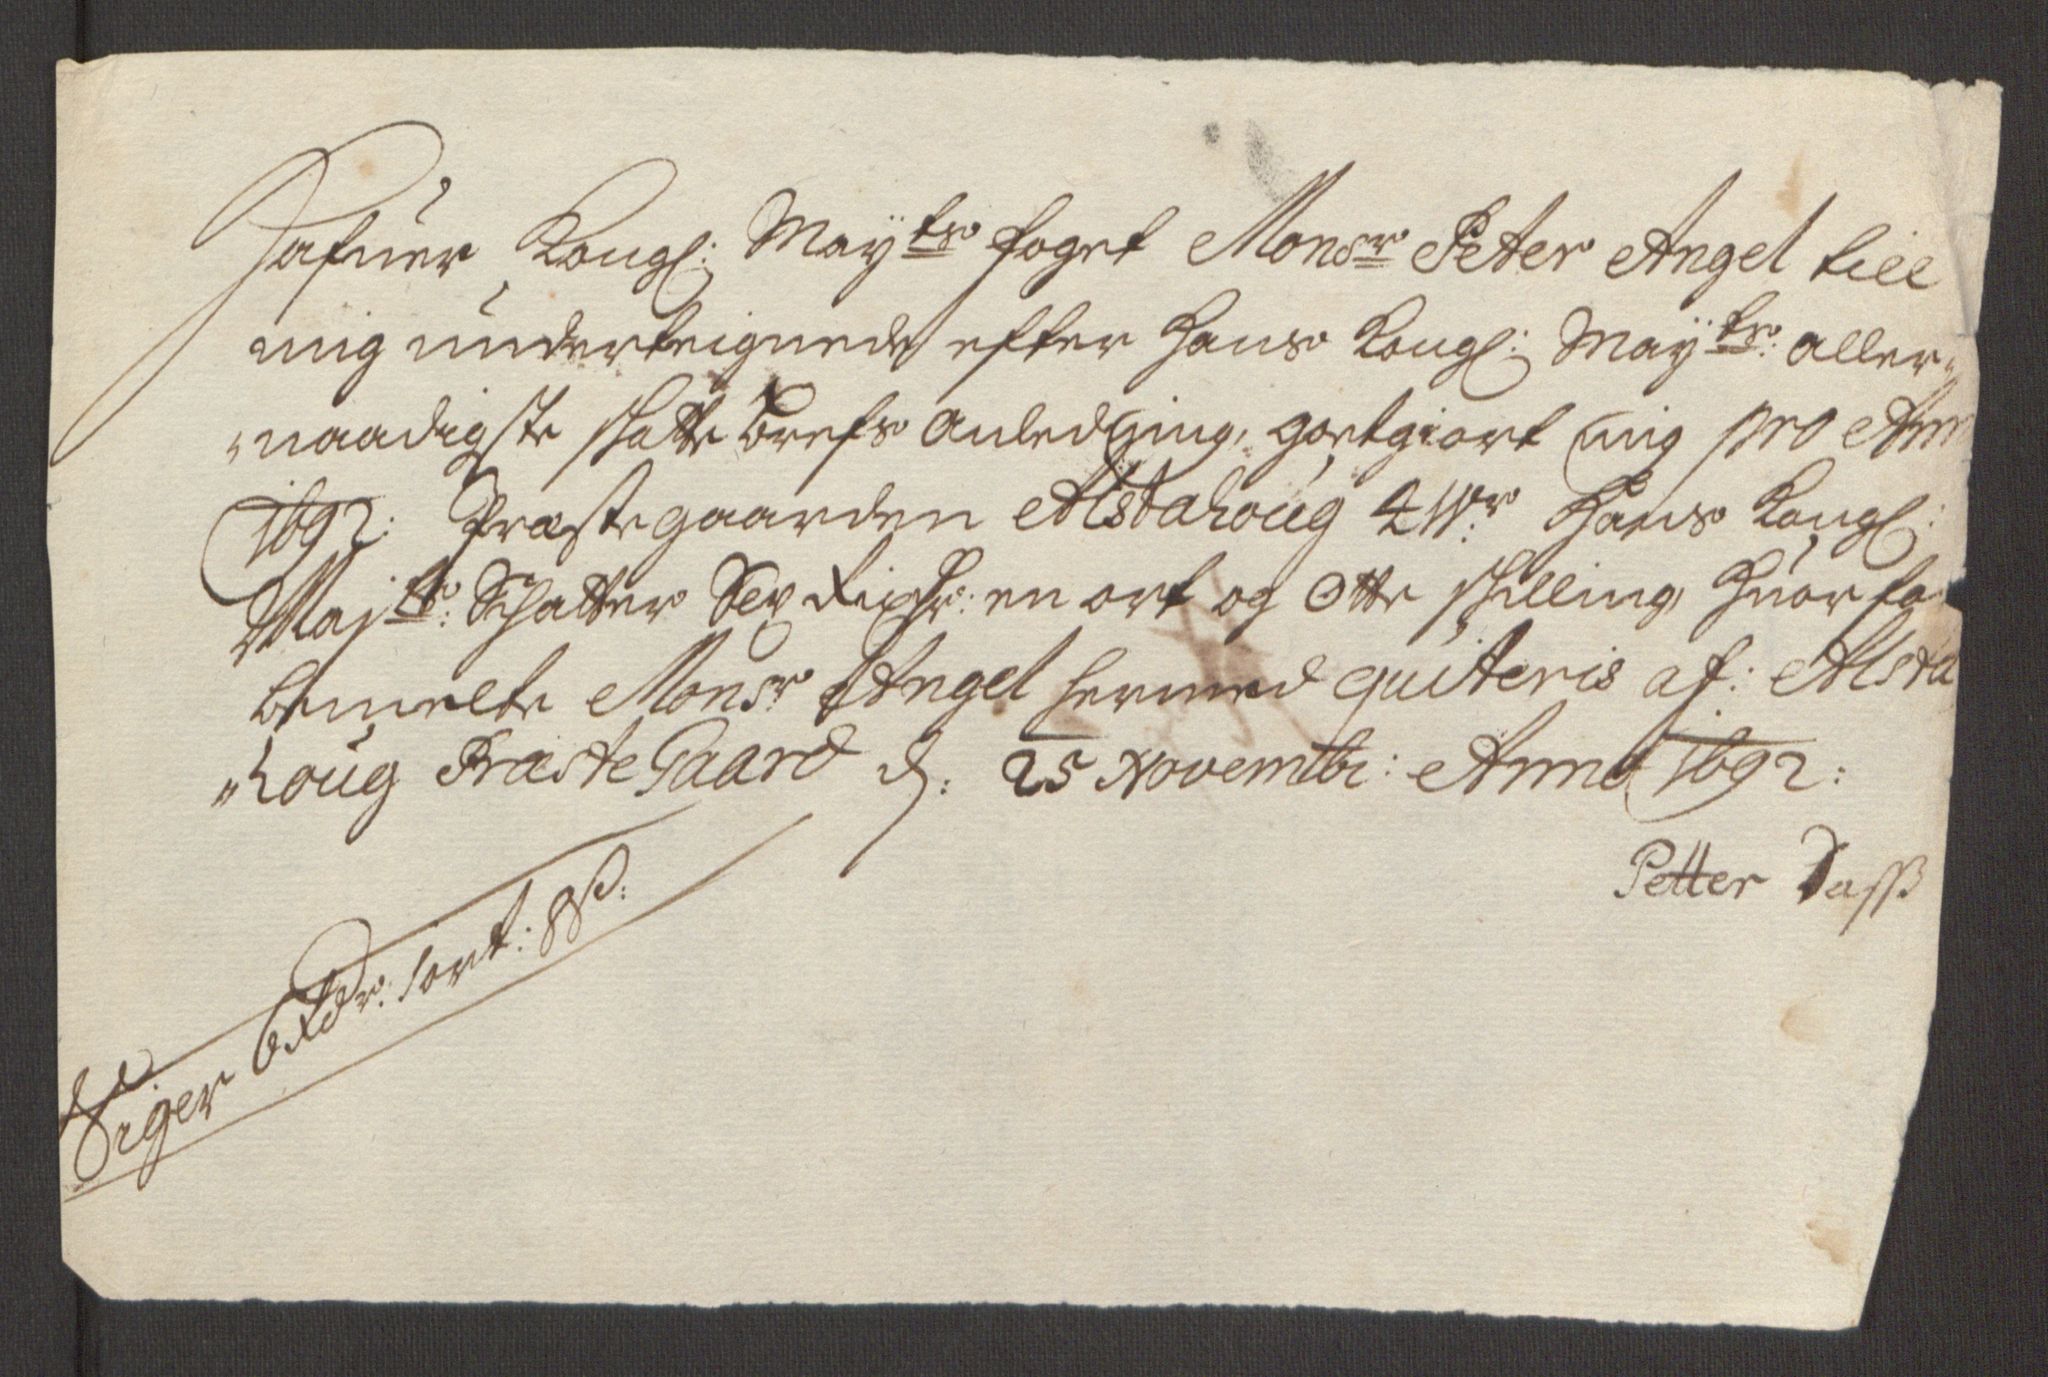 Hafuer Kongl: Mayts foget Monsr Peter Angel till
mig underteignede efter hans Kongl: Mayts: aller-
naadigste skatte brefs anledning, goetgiort mig pro Ann
1692: Præstegaarden Alstahoug 4 Wr: hans Kongl:
Majts: Schatter Sex Rixdr: en ort og Otte skilling, huor fo
bemelte Monsr Angel hermed quiteris af: Alsta
houg Præste Gaard d: 25 Novembr: Anno 1692:
Petter Dass
Siger 6 Rdr: 1 ort: 8 s: